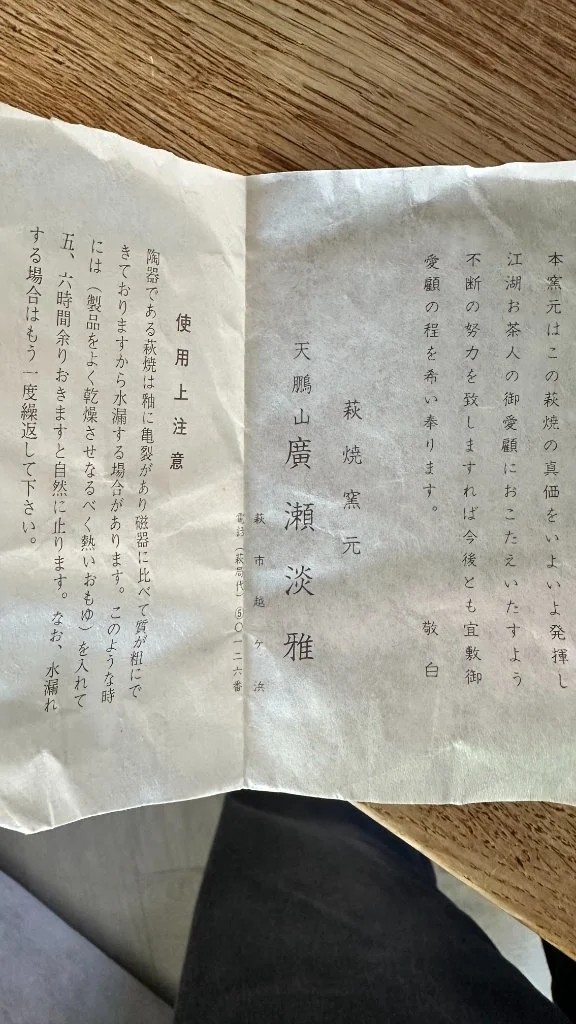 本窯元はこの萩焼の真価をいよいよ発揮し
江湖お茶人の御愛顧におこたえいたすよう
不断の努力を致しますれば今後とも宜敷御
愛顧の程を希い奉ります。 敬白
萩焼窯元
天鵬山 廣瀬淡雅
萩市越ケ浜
電話(萩局代)⑤〇一二六番
使用上注意
陶器である萩焼は釉に亀裂があり磁器に比べて質が粗にで
きておりますから水漏する場合があります。このような時
には(製品をよく乾燥させなるべく熱いおもゆ)を入れて
五、六時間余りおきますと自然に止ります。なお、水漏れ
する場合はもう一度繰返して下さい。